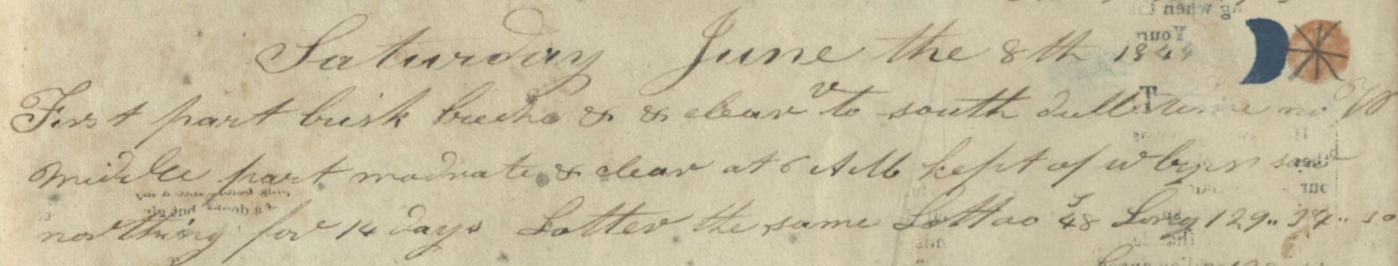 Saturday June the 8th 1844
First part brisk & & clear to south dull time no W
Middle part modrate & clear at 6 AM kept of w by n saw
northing for 14 days Latter the same Lattao 48 Long 129.. 34.. so